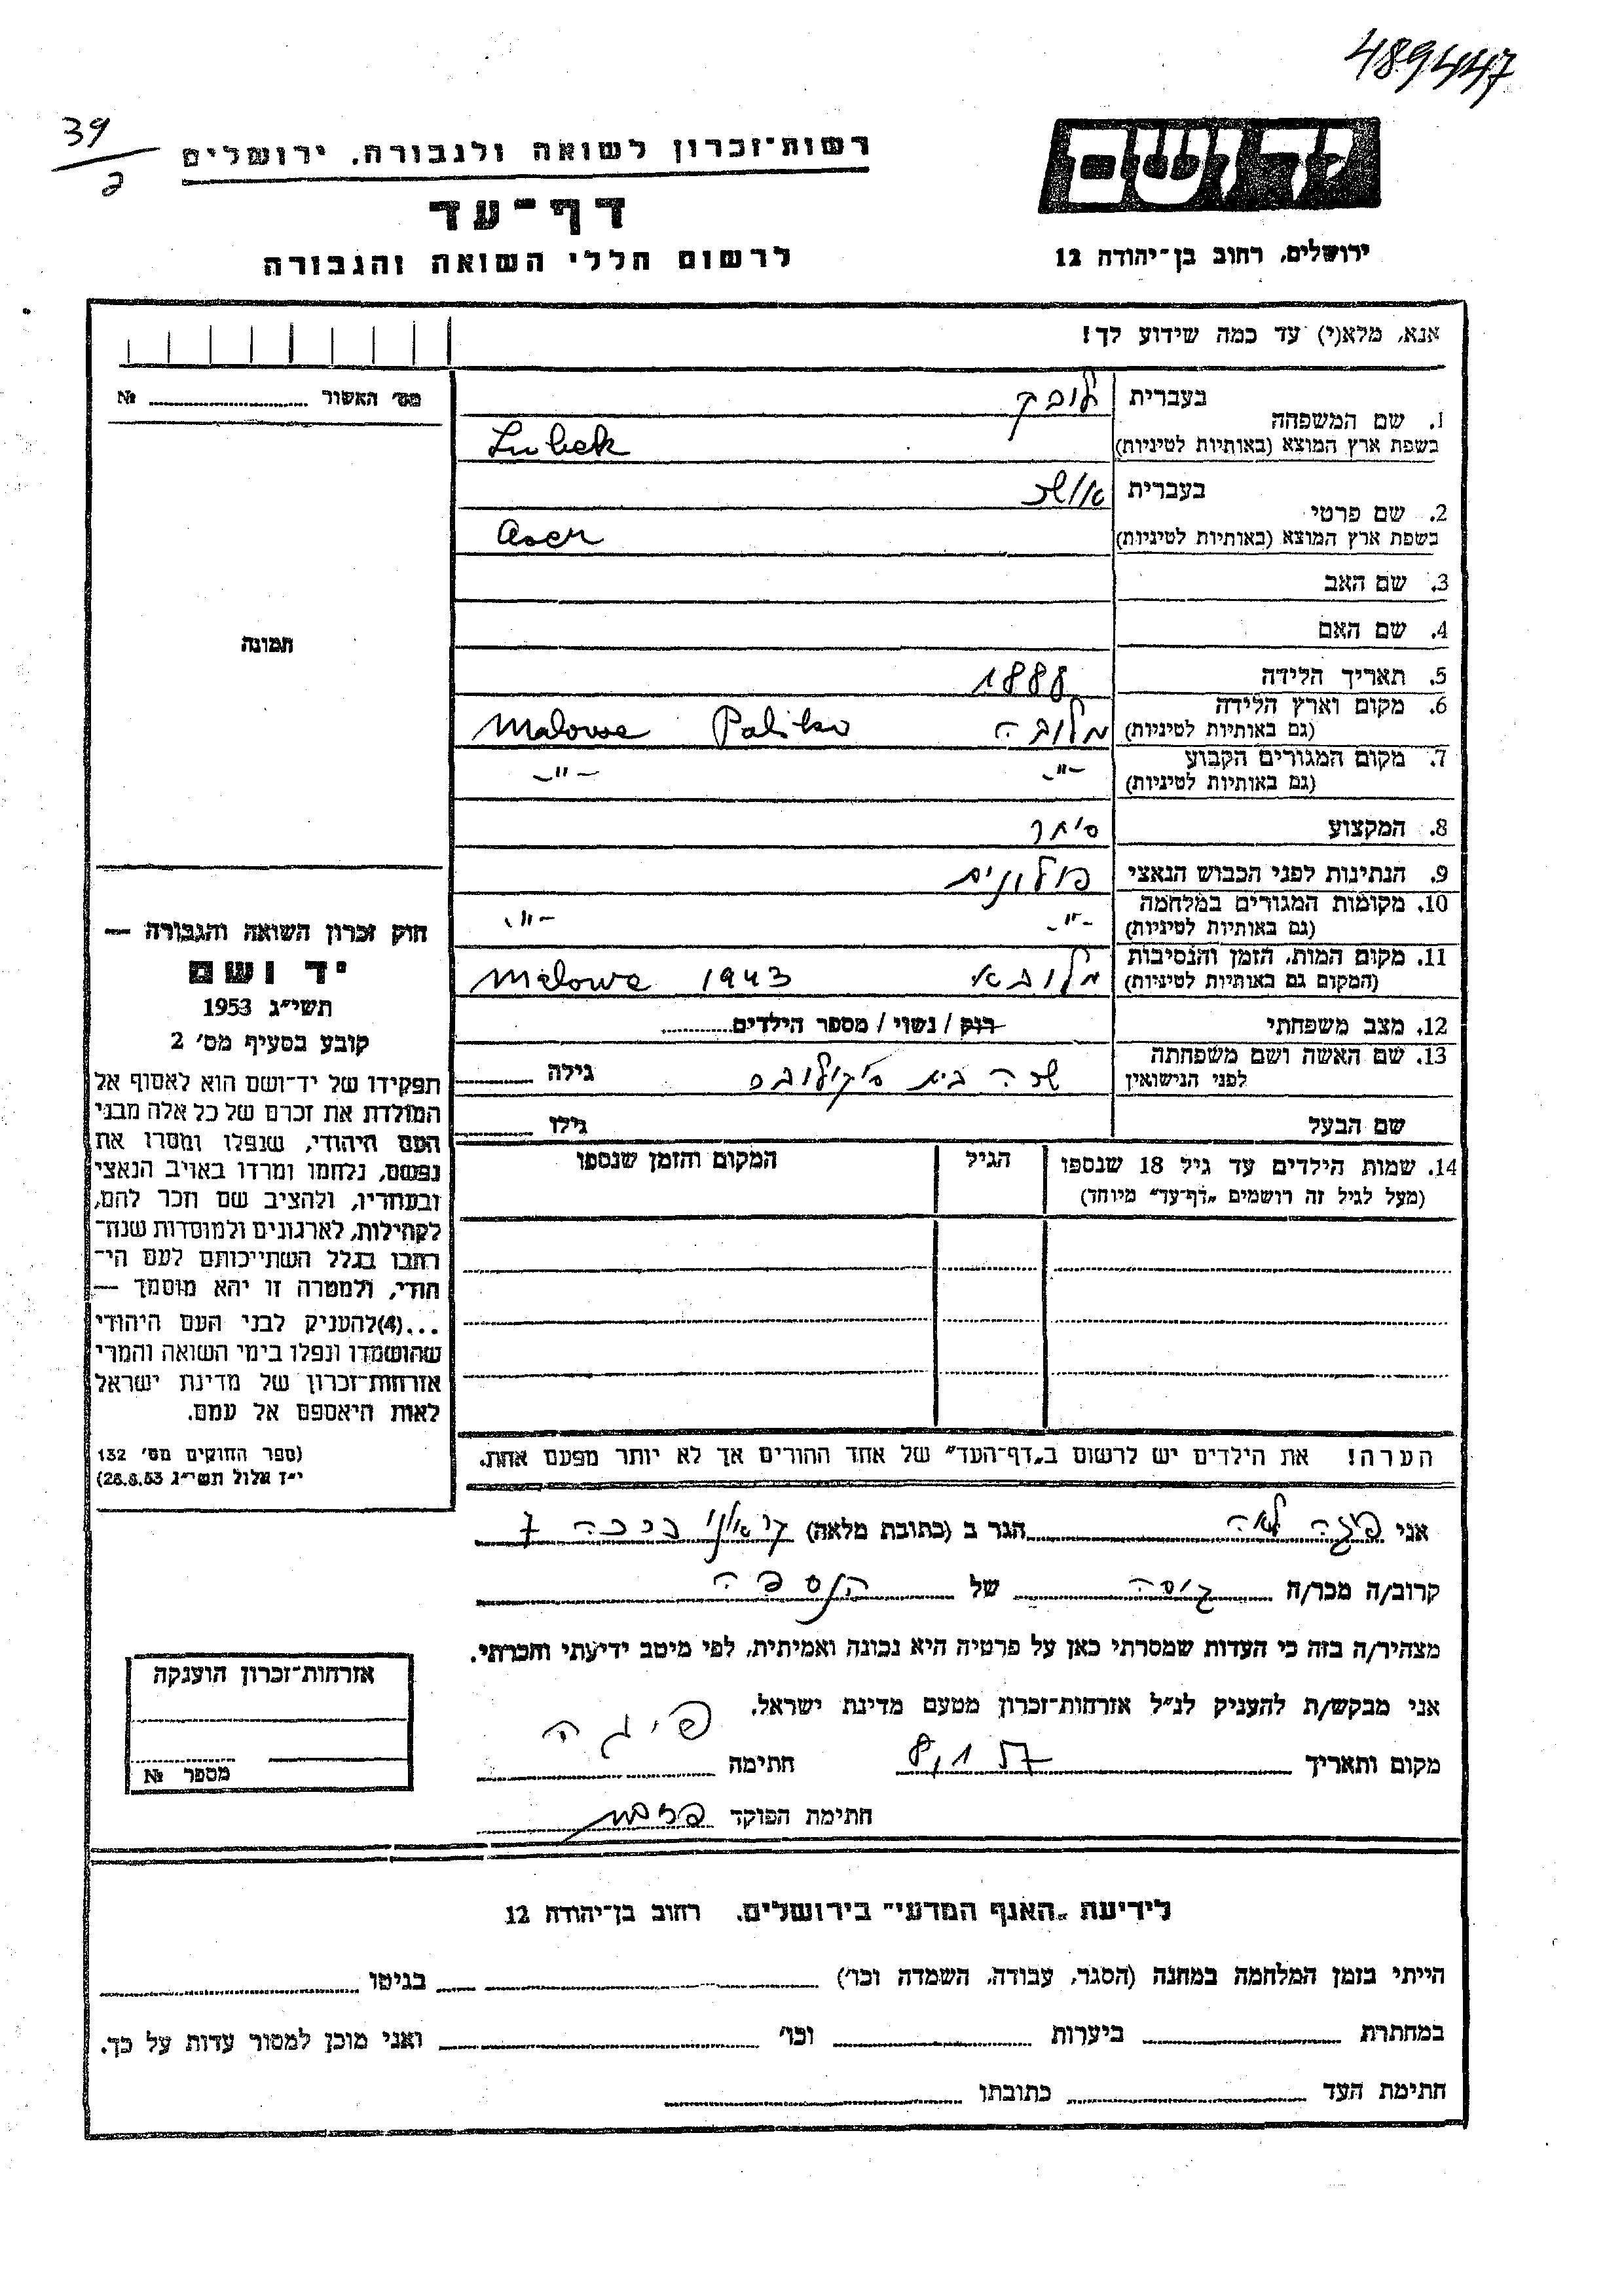 489447
39
2
רשות־זכרון לשואה ולגבורה, ירושלים
יד ושם
דף־עד
ירושלים, רחוב בן־יהודה 12
לרשום חללי השואה והגבורה
אנא, מלא(י) עד כמה שידוע לך!
מס׳ האשור № 
1. שם המשפחה בעברית לובק
בשפת ארץ המוצא (באותיות לטיניות) Lubek
2. שם פרטי בעברית אושר
בשפת ארץ המוצא (באותיות לטיניות) Aser
3. שם האב
4. שם האם
תמונה
5. תאריך הלידה 1888
6. מקום וארץ הלידה
(גם באותיות לטיניות) מלובה Malowa
7. מקום המגורים הקבוע
(גם באותיות לטיניות) -"- -"-
8. המקצוע סוחר
9. הנתינות לפני הכבוש הנאצי
10. מקומות המגורים במלחמה
(גם באותיות לטיניות) -"- -"-
11. מקום המות, הזמן והנסיבות
(המקום גם באותיות לטיניות) מלובא 1943 Malowa
12. מצב משפחתי רוק / נשוי / מספר הילדים
13. שם האשה ושם משפחתה
לפני הנישואין שרה בית גילה
שם הבעל גילו
14. שמות הילדים עד גיל 18 שנספו הגיל המקום והזמן שנספו
(מעל לגיל זה רושמים „דף־עד״ מיוחד)
חוק זכרון השואה והגבורה —
יד ושם
תשי״ג 1953
קובע בסעיף מס׳ 2
תפקידו של יד־ושם הוא לאסוף אל
המולדת את זכרם של כל אלה מבני
העם היהודי, שנפלו ומסרו את
נפשם, נלחמו ומרדו באויב הנאצי
ובעוזריו, ולהציב שם וזכר להם,
לקהילות, לארגונים ולמוסדות שנח־
רבו בגלל השתייכותם לעם הי־
הודי, ולמטרה זו יהא מוסמך —
...(4)להעניק לבני העם היהודי
שהושמדו ונפלו בימי השואה והמרי
אזרחות־זכרון של מדינת ישראל
לאות היאספם אל עמם.
(ספר החוקים מס׳ 132
י״ז אלול תשי״ג 28.8.53)
הערה! את הילדים יש לרשום ב„דף־העד״ של אחד ההורים אך לא יותר מפעם אחת.
אני פיגה לאה הגר ב (כתובת מלאה) 7
קרוב/ה מכר/ה גיסה של הנספה
מצהיר/ה בזה כי העדות שמסרתי כאן על פרטיה היא נכונה ואמיתית, לפי מיטב ידיעתי והכרתי.
אני מבקש/ת להעניק לנ״ל אזרחות־זכרון מטעם מדינת ישראל.
מקום ותאריך חתימה פיגה
חתימת הפוקד
אזרחות־זכרון הוענקה
מספר №
לידיעת „האגף המדעי״ בירושלים, רחוב בן־יהודה 12
הייתי בזמן המלחמה במחנה (הסגר, עבודה, השמדה וכו׳) בגיטו
במחתרת ביערות וכו׳ ואני מוכן למסור עדות על כך.
חתימת העד כתובתו